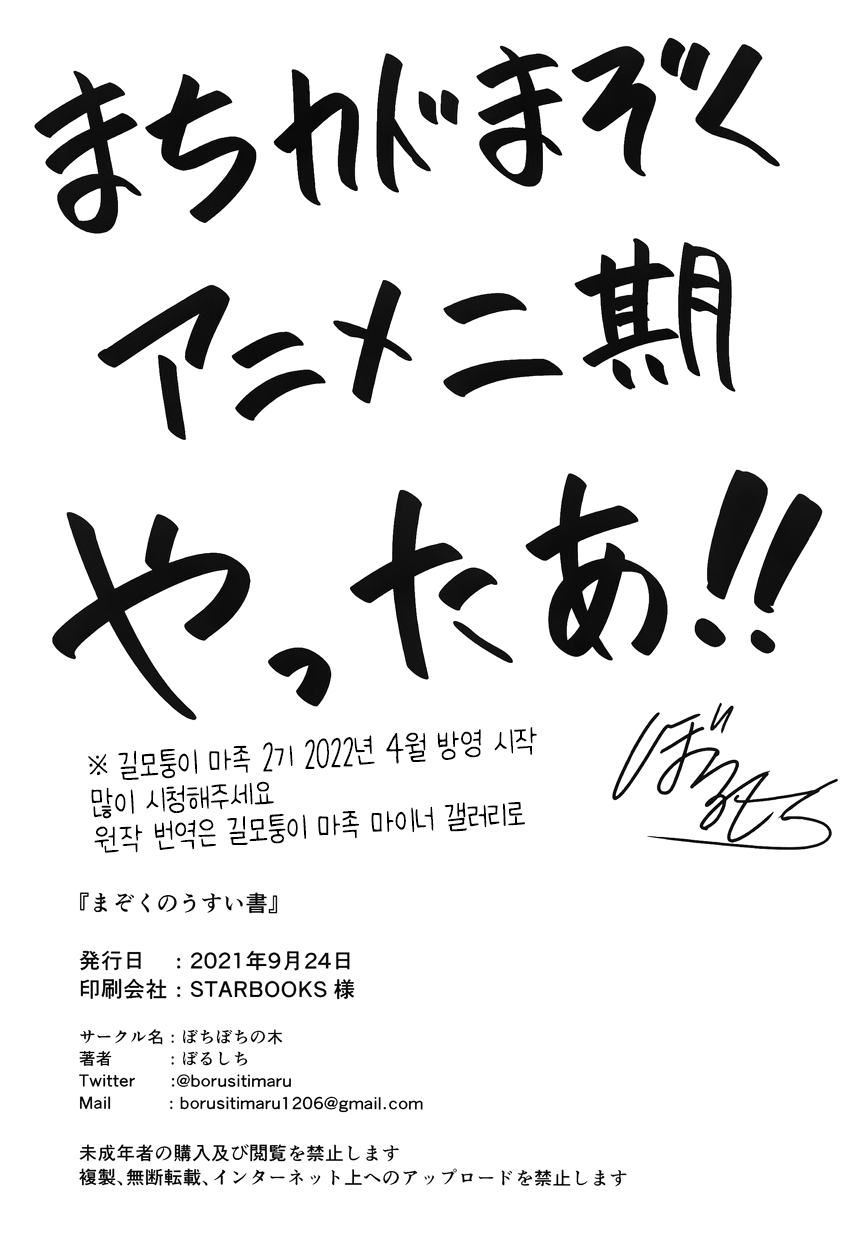 まちカドまぞく
アニメ二期
やったあ!!
※ 길모퉁이 마족 2기 2022년 4월 방영 시작
많이 시청해주세요
원작 번역은 길모퉁이 마족 마이너 갤러리로
ぼるしち
『まぞくのうすい書』
発行日 : 2021年9月24日
印刷会社 : STARBOOKS 様
サークル名 : ぼちぼちの木
著者 : ぼるしち
Twitter :@borusitimaru
Mail : borusitimaru1206@gmail.com
未成年者の購入及び閲覧を禁止します
複製、無断転載、インターネット上へのアップロードを禁止します